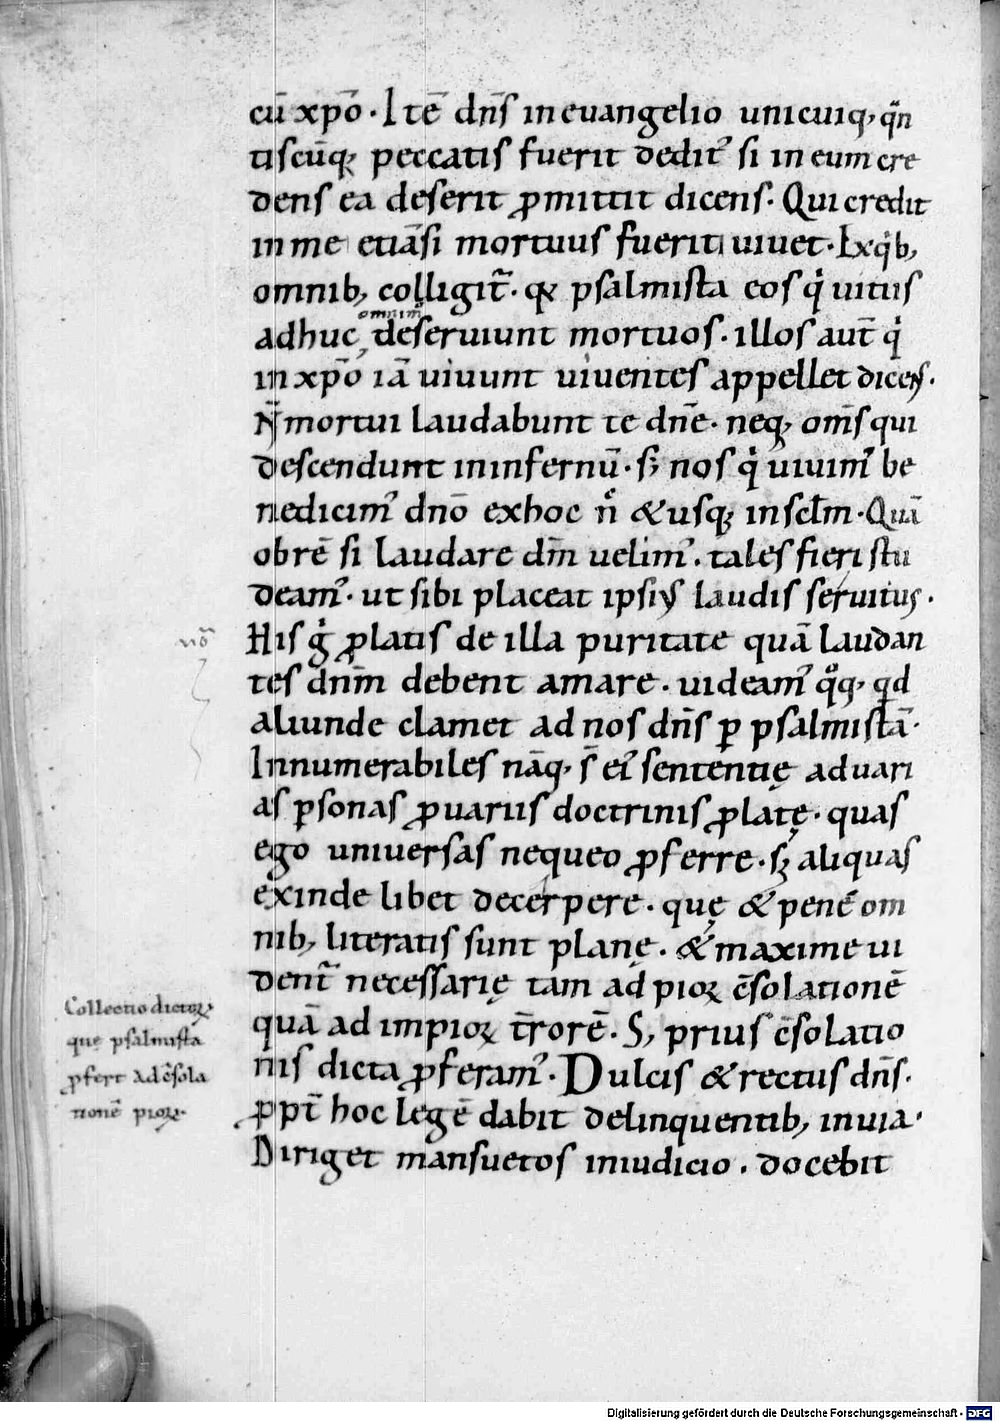 cū xp̄o · Itē dn̄s in euangelio unicuiq; qn̄
tiscūq; peccatis fuerit dedit᾿ si in eum cre
dens ea deserit ꝓmittit dicens · Qui credit
in me etiāsi mortuus fuerit uiuet · Ex qͥb;
omnib; colligit̄ · qꝫ psalmista eos qͥ uitiis
omnim̄
adhuc deseruiunt mortuos · illos aut̄ qͥ
in xp̄o iā uiuunt uiuentes appellet dicens ·
N̄ mortui laudabunt te dn̄e · neq; om̄s qui
descendunt in infernū · sꝫ nos qͥ uiuim᾿ be
nedicim᾿ dn̄o ex hoc n̊ & usq; in sc̄lm · Quā
obrē si laudare dm̄ uelim᾿ · tales fieri stu
deam᾿ · ut sibi placeat ipsius laudis seruitus ·
nō
His gͥ ꝓlatis de illa puritate quā laudan
tes dnm̄ debent amare · uideam᾿ qͦq; qd
aliunde clamet ad nos dn̄s ꝑ psalmistā ·
Innumerabiles nāq; s̄ ei᾿ sententię ad uari
as ꝑsonas ꝓ uariis doctrinis ꝓlatę · quas
ego uniuersas nequeo ꝓferre · sꝫ aliquas
exinde libet decerpere · quę & pene om
nib; literatis sunt planę · & maxime ui
dent̄ necessarię tam ad pioꝝ c̄solationē
quā ad impioꝝ t̄rorē · S; prius c̄solatio
nis dicta ꝓferam᾿ · Dulcis & rectus dn̄s ·
ꝓpt̄ hoc legē dabit delinquentib; in uia ·
Diriget mansuetos in iudicio · docebit
Collectio dictoꝝ
quę psalmista
ꝓfert ad c̄sola
tionē pioꝝ ·
Digitalisierung gefördert durch die Deutsche Forschungsgemeinschaft - DFG